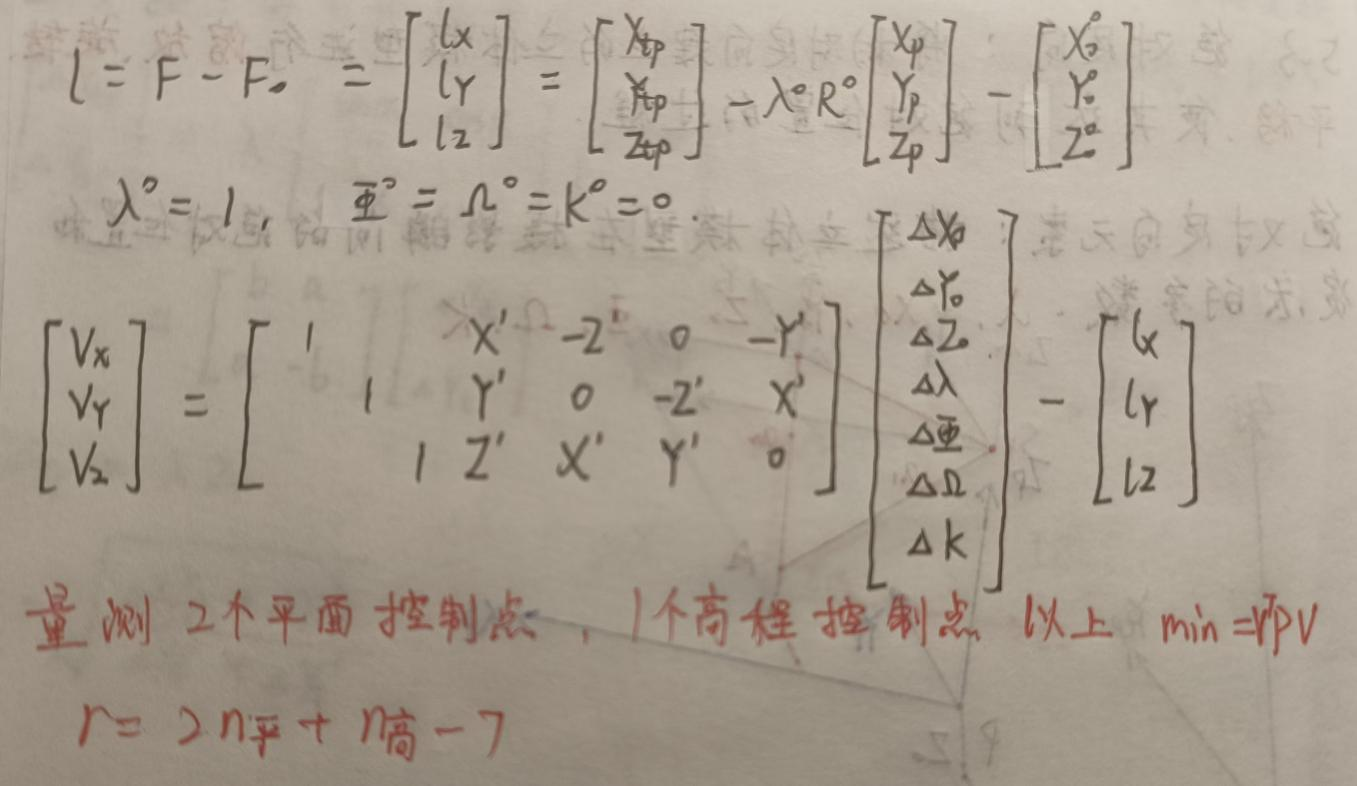 l = F - F₀ = [lx lY lz] = [Xtp Ytp Ztp] - λ⁰R⁰ [Xp Yp Zp] - [X₀⁰ Y₀⁰ Z₀⁰]
λ⁰ = 1, Φ⁰ = Ω⁰ = K⁰ = 0.
[Vx VY Vz] = [1 X' -Z 0 -Y' 1 Y' 0 -Z' X' 1 Z' X' Y' 0] [ΔX₀ ΔY₀ ΔZ₀ Δλ ΔΦ ΔΩ ΔK] - [lx lY lZ]
量测2个平面控制点,1个高程控制点以上 min = VᵀPV
r = 2n平 + n高 - 7